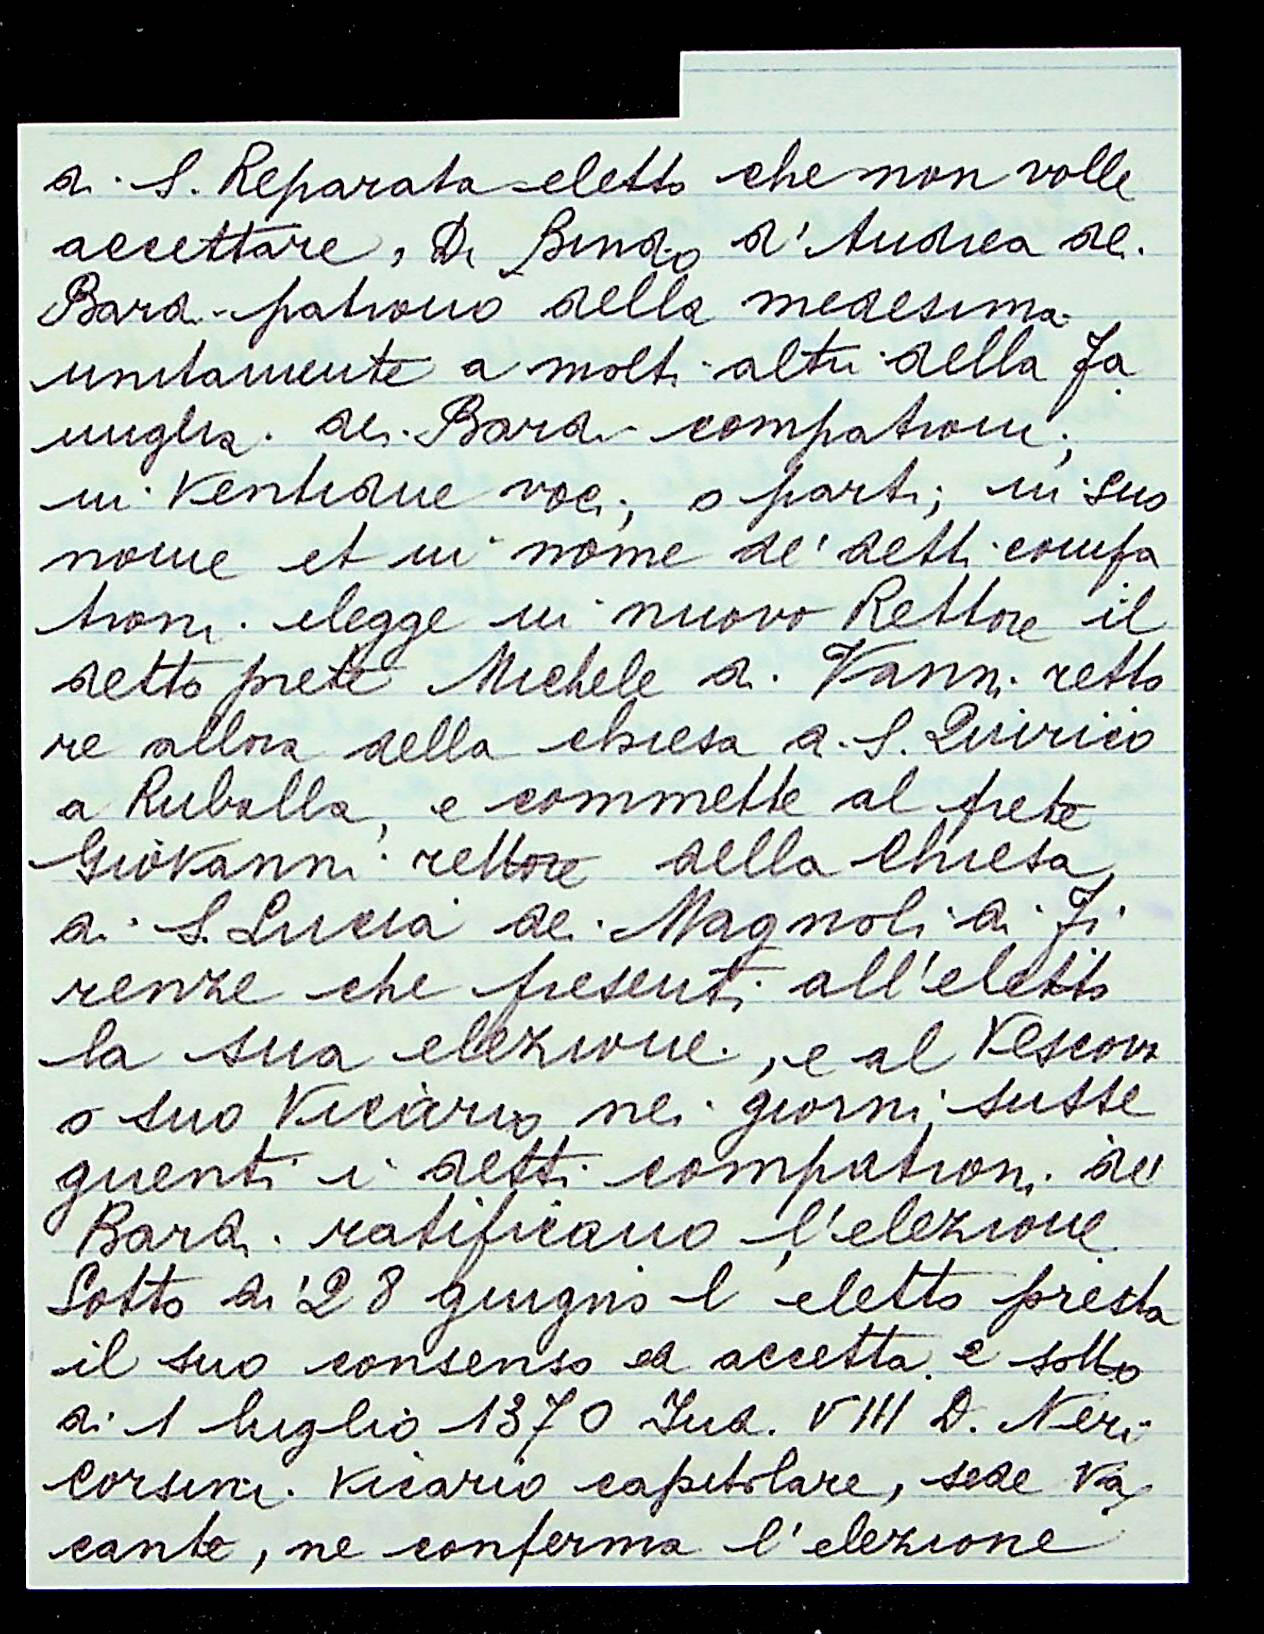 di S. Reparata eletto che non volle
accettare, Di Bindo d'Andrea dei
Bardi patrono della medesima
unitamente a molti altri della Fa
miglia dei Bardi compatroni,
in Ventidue voci, o parti, in suo
nome et in nome de' detti compa
troni elegge in nuovo Rettore il
detto prete Michele di Vanni retto
re allora della chiesa di S. Quirico
a Ruballa, e commette al prete
Giovanni rettore della Chiesa
di S. Lucia dei Magnoli di Fi
renze che presenti all'eletto
la sua elezione, e al Vescovo
o suo Vicario nei giorni susse
guenti i detti compatroni de'
Bardi ratificano l'elezione
Sotto di 28 giugno l'eletto presta
il suo consenso ed accetta e sotto
di 1 luglio 1370 Ind. VIII D. Neri
Corsini Vicario capitolare, sede va
cante, ne conferma l'elezione